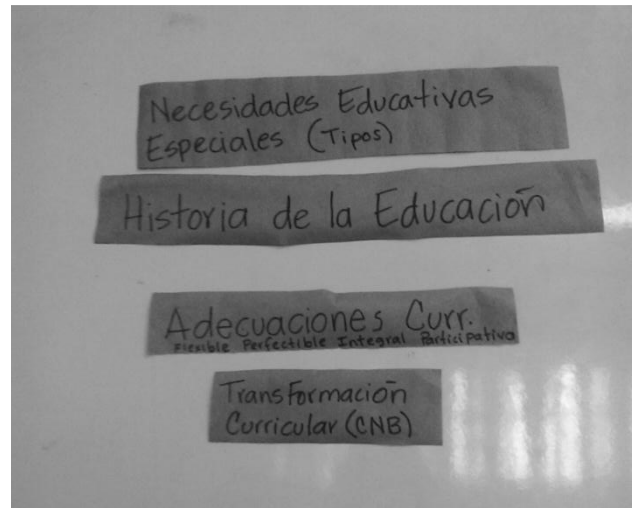 Necesidades Educativas
Especiales (Tipos)
Historia de la Educación
Adecuaciones Curr.
Flexible Perfectible Integral Participativa
Transformación
Curricular (CNB)